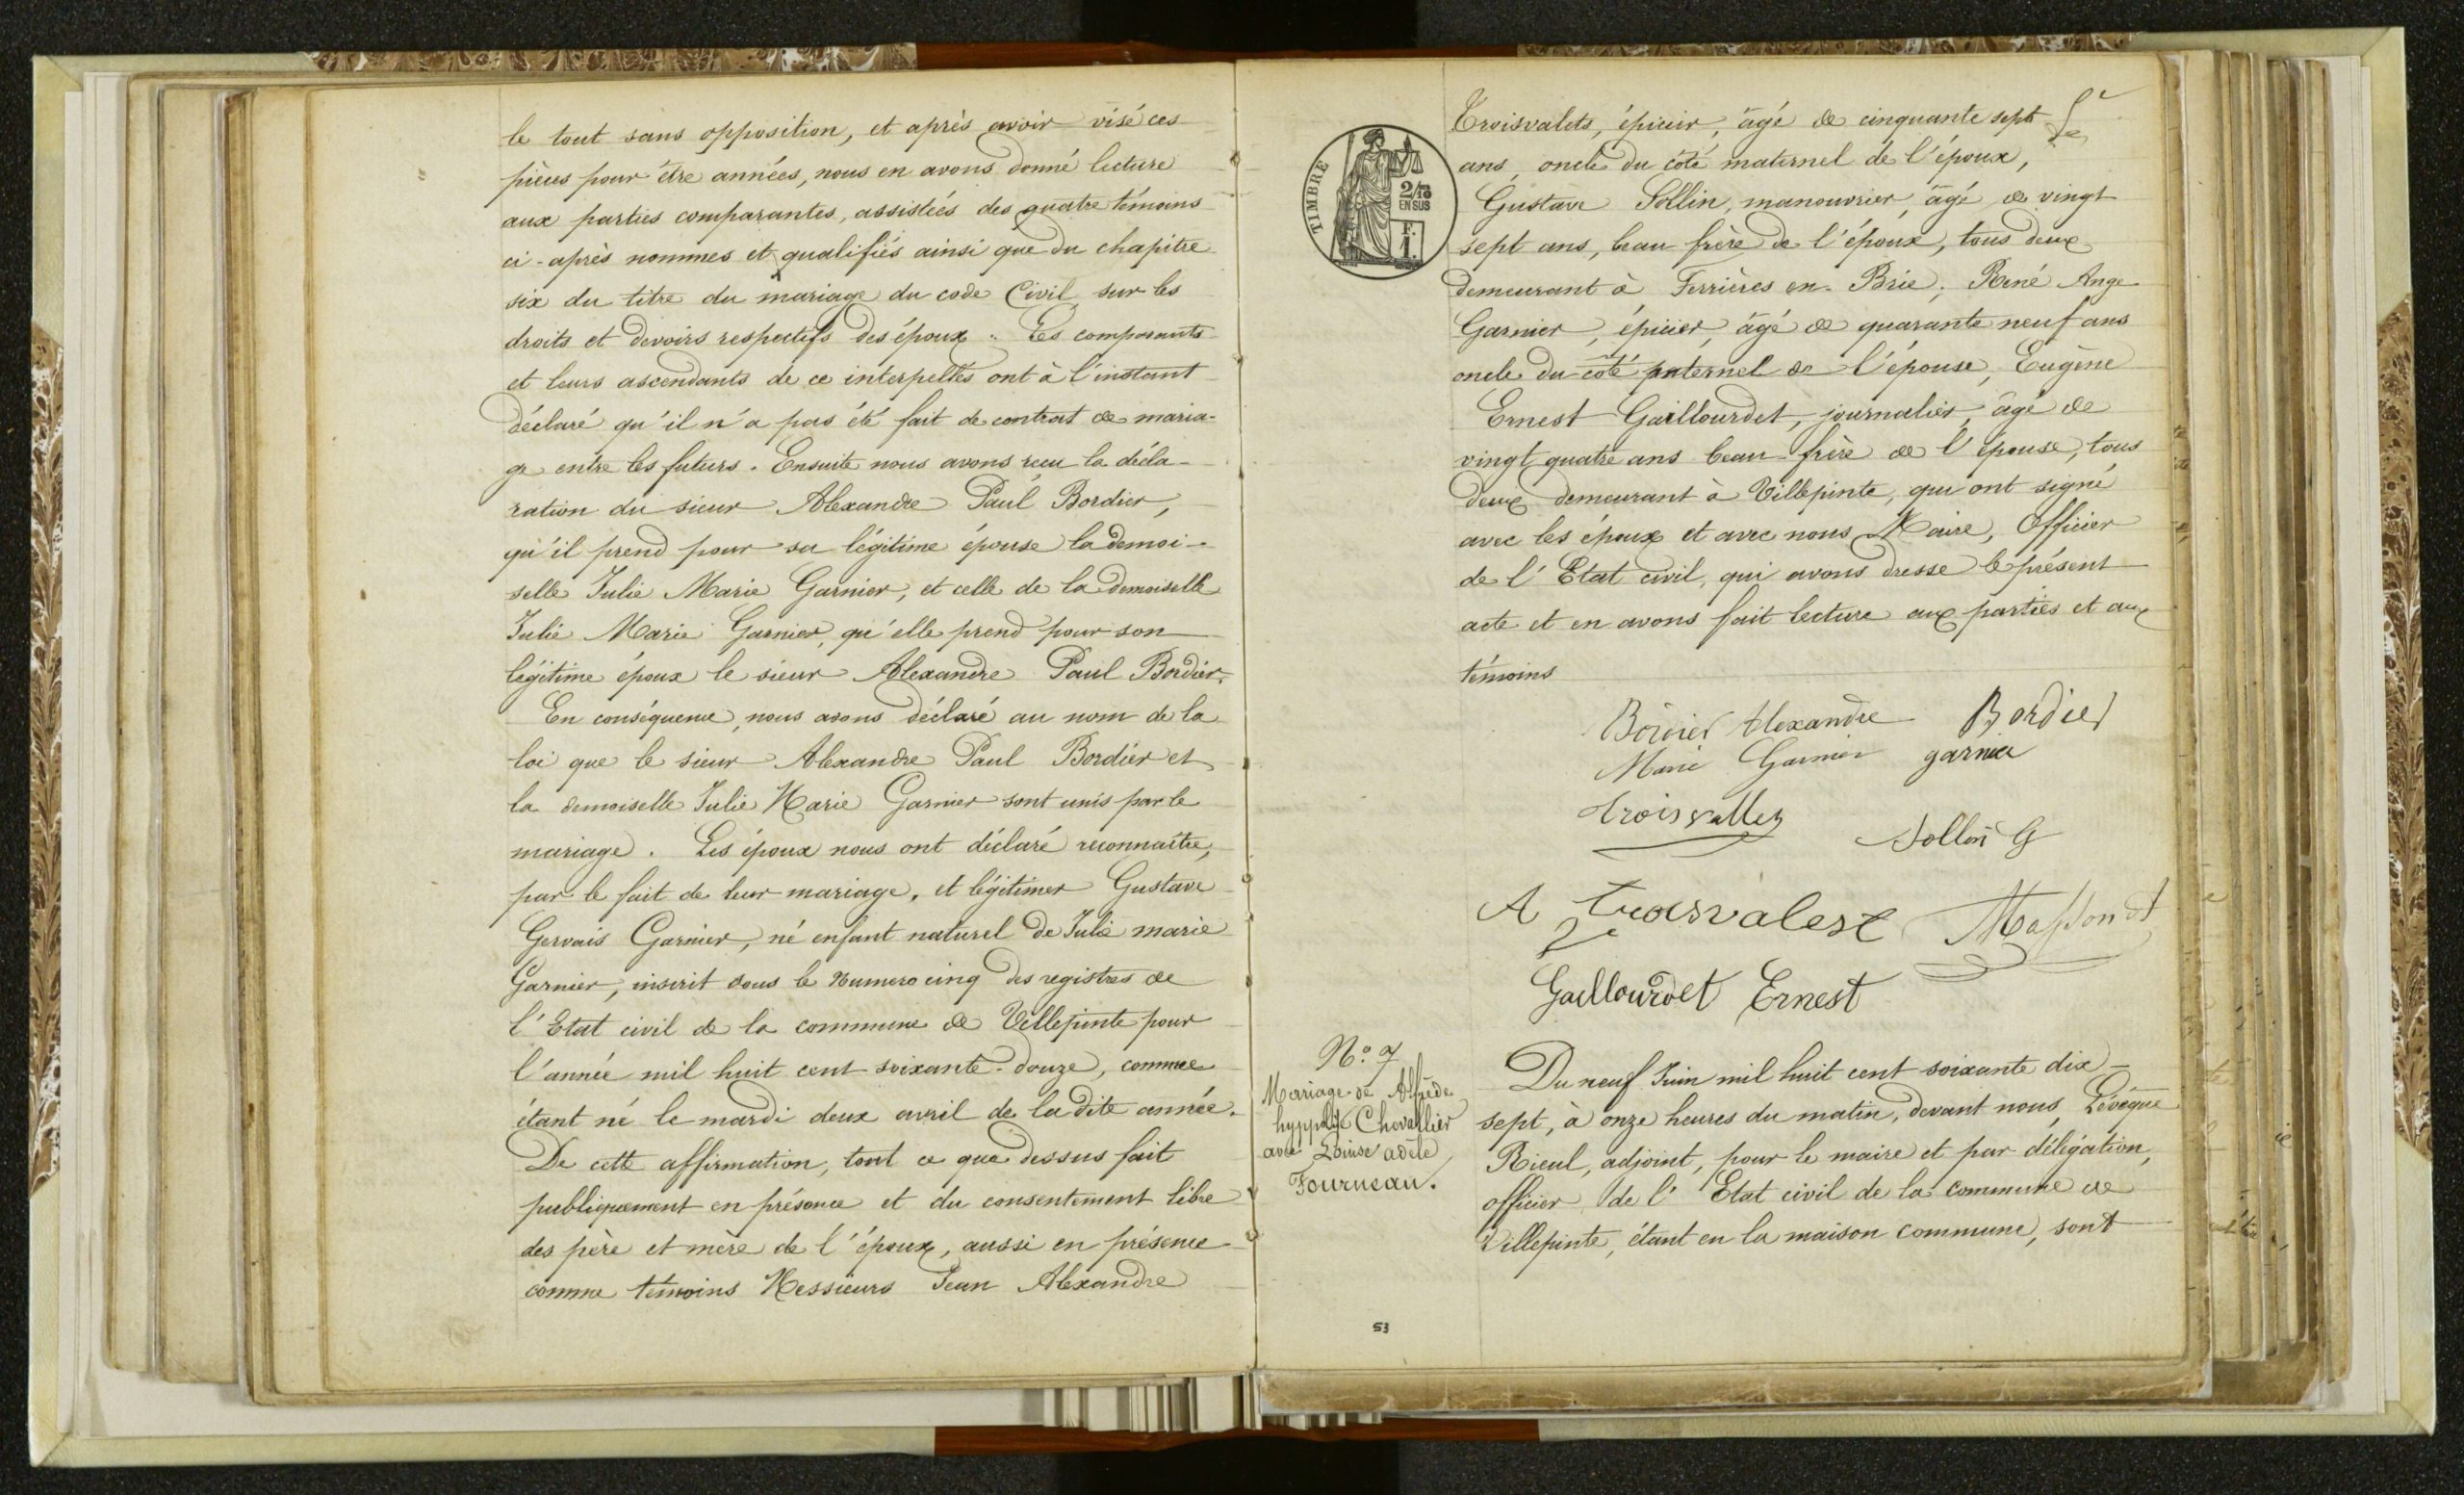 le tout sans opposition, et après avoir visé ces
pièces pour être années, nous en avons donné lecture
aux parties comparantes, assistées des quatre témoins
ci-après nommes et qualifiés ainsi que du chapitre
six du titre du mariage du code Civil, sur les
droits et devoirs respectifs des époux. Les comparants
et leurs ascendants de ce interpellés ont à l'instant
déclaré qu'il n'a pas été fait de contrat de maria-
ge entre les futurs. Ensuite nous avons reçu la décla-
ration du sieur Alexandre Paul Bordier,
qu'il prend pour sa légitime épouse la demoi-
selle Julie Marie Garnier, et celle de la demoiselle
Julie Marie Garnier, qu'elle prend pour son
légitime époux le sieur Alexandre Paul Bordier.
En conséquence, nous avons déclaré au nom de la
loi que le sieur Alexandre Paul Bordier et
la demoiselle Julie Marie Garnier sont unis par le
mariage. Les époux nous ont déclaré reconnaître,
par le fait de leur mariage, et légitimer Gustave
Gervais Garnier, né enfant naturel de Julie marie
Garnier, inscrit sous le Numero cinq des registres de
l'Etat civil de la commune de Villepinte pour
l'année mil huit cent soixante-douze, comme
étant né le mardi deux avril de la dite année.
De cette affirmation, tout ce que dessus fait
publiquement en présence et du consentement libre
des père et mère de l'époux, aussi en présence
comme témoins Messieurs Jean Alexandre
TIMBRE
2/10
EN SUS
F.
1.
Troisvalets, épicier, âgé de cinquante sept
ans, oncle du côté maternel de l'époux,
Gustave Sollin, manouvrier, âgé de vingt
sept ans, beau frère de l'époux, tous deux
demeurant à Ferrières en-Brie; René Ange
Garnier, épicier, âgé de quarante neuf ans
oncle du côté paternel de l'épouse, Eugène
Ernest Gaillourdet, journalier, âgé de
vingt quatre ans beau-frère de l'épouse, tous
deux demeurant à Villepinte, qui ont signé
avec les époux et avec nous Maire, Officier
de l'Etat civil, qui avons dresse le présent
acte et en avons fait lecture aux parties et aux
témoins
Bordier Alexandre Bordier
Marie Garnier garnier
troisvallez
Sollin G
A troisvalest Masson
Gaillourdet Ernest
N° 7
Mariage de Alfrede
hyppolite Chevallier
avec Louise adèle
Fourneau.
Du neuf Juin mil huit cent soixante dix-
sept, à onze heures du matin, devant nous, Lévêque
Rieul, adjoint, pour le maire et par délégation,
officier de l'Etat civil de la commune de
Villepinte, étant en la maison commune, sont
53